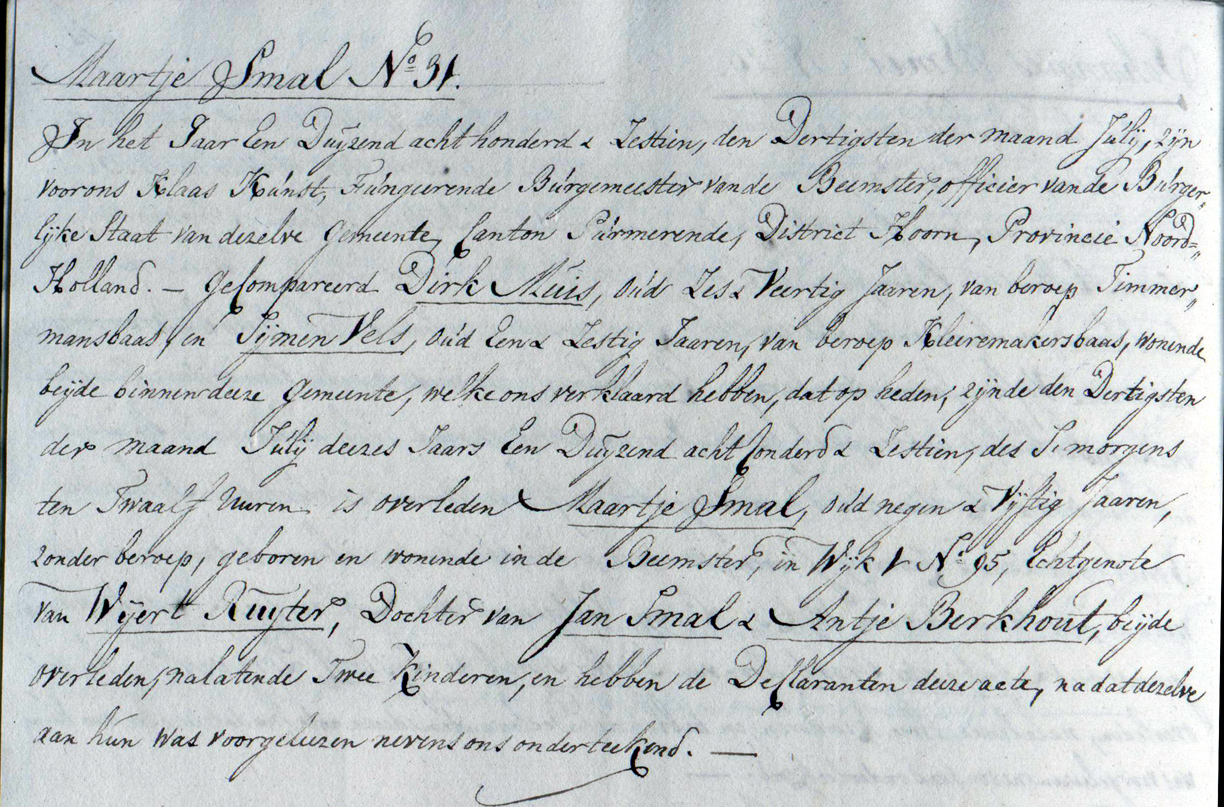 Maartje Smal N.o 31.
In het Jaar Een Duyzend acht honderd & Zestien, den Dertigsten der maand Julij, zijn
voor ons Klaas Kunst, Fungeerende Burgemeester van de Beemster, officier van de Burger„
lijke Staat van dezelve Gemeente, Canton Purmerende, District Hoorn, Provincie Noord„
Holland. — Gecompareerd Dirk Muis, oud Zes & Veertig Jaaren, van beroep Timmer„
mansbaas, en Sijmen Vels, oud Een & Zestig Jaaren, van beroep Kleiremakersbaas, wonende
beijde binnen deeze Gemeente, welke ons verklaard hebben, dat op heden, zijnde den Dertigsten
der maand Julij deezes Jaars Een Duyzend acht honderd & Zestien, des S. morgens
ten Twaalf Uuren is overleden Maartje Smal, oud negen & Vijftig Jaaren,
zonder beroep, geboren en wonende in de Beemster, in Wijk V N.o 95, Echtgenote
van Wijert Ruijter, Dochter van Jan Smal & Antje Berkhout, beijde
overleden, nalatende Twee Kinderen, en hebben de Declaranten deeze acte, na dat dezelve
aan hun was voorgeleezen nevens ons onderteekend. —